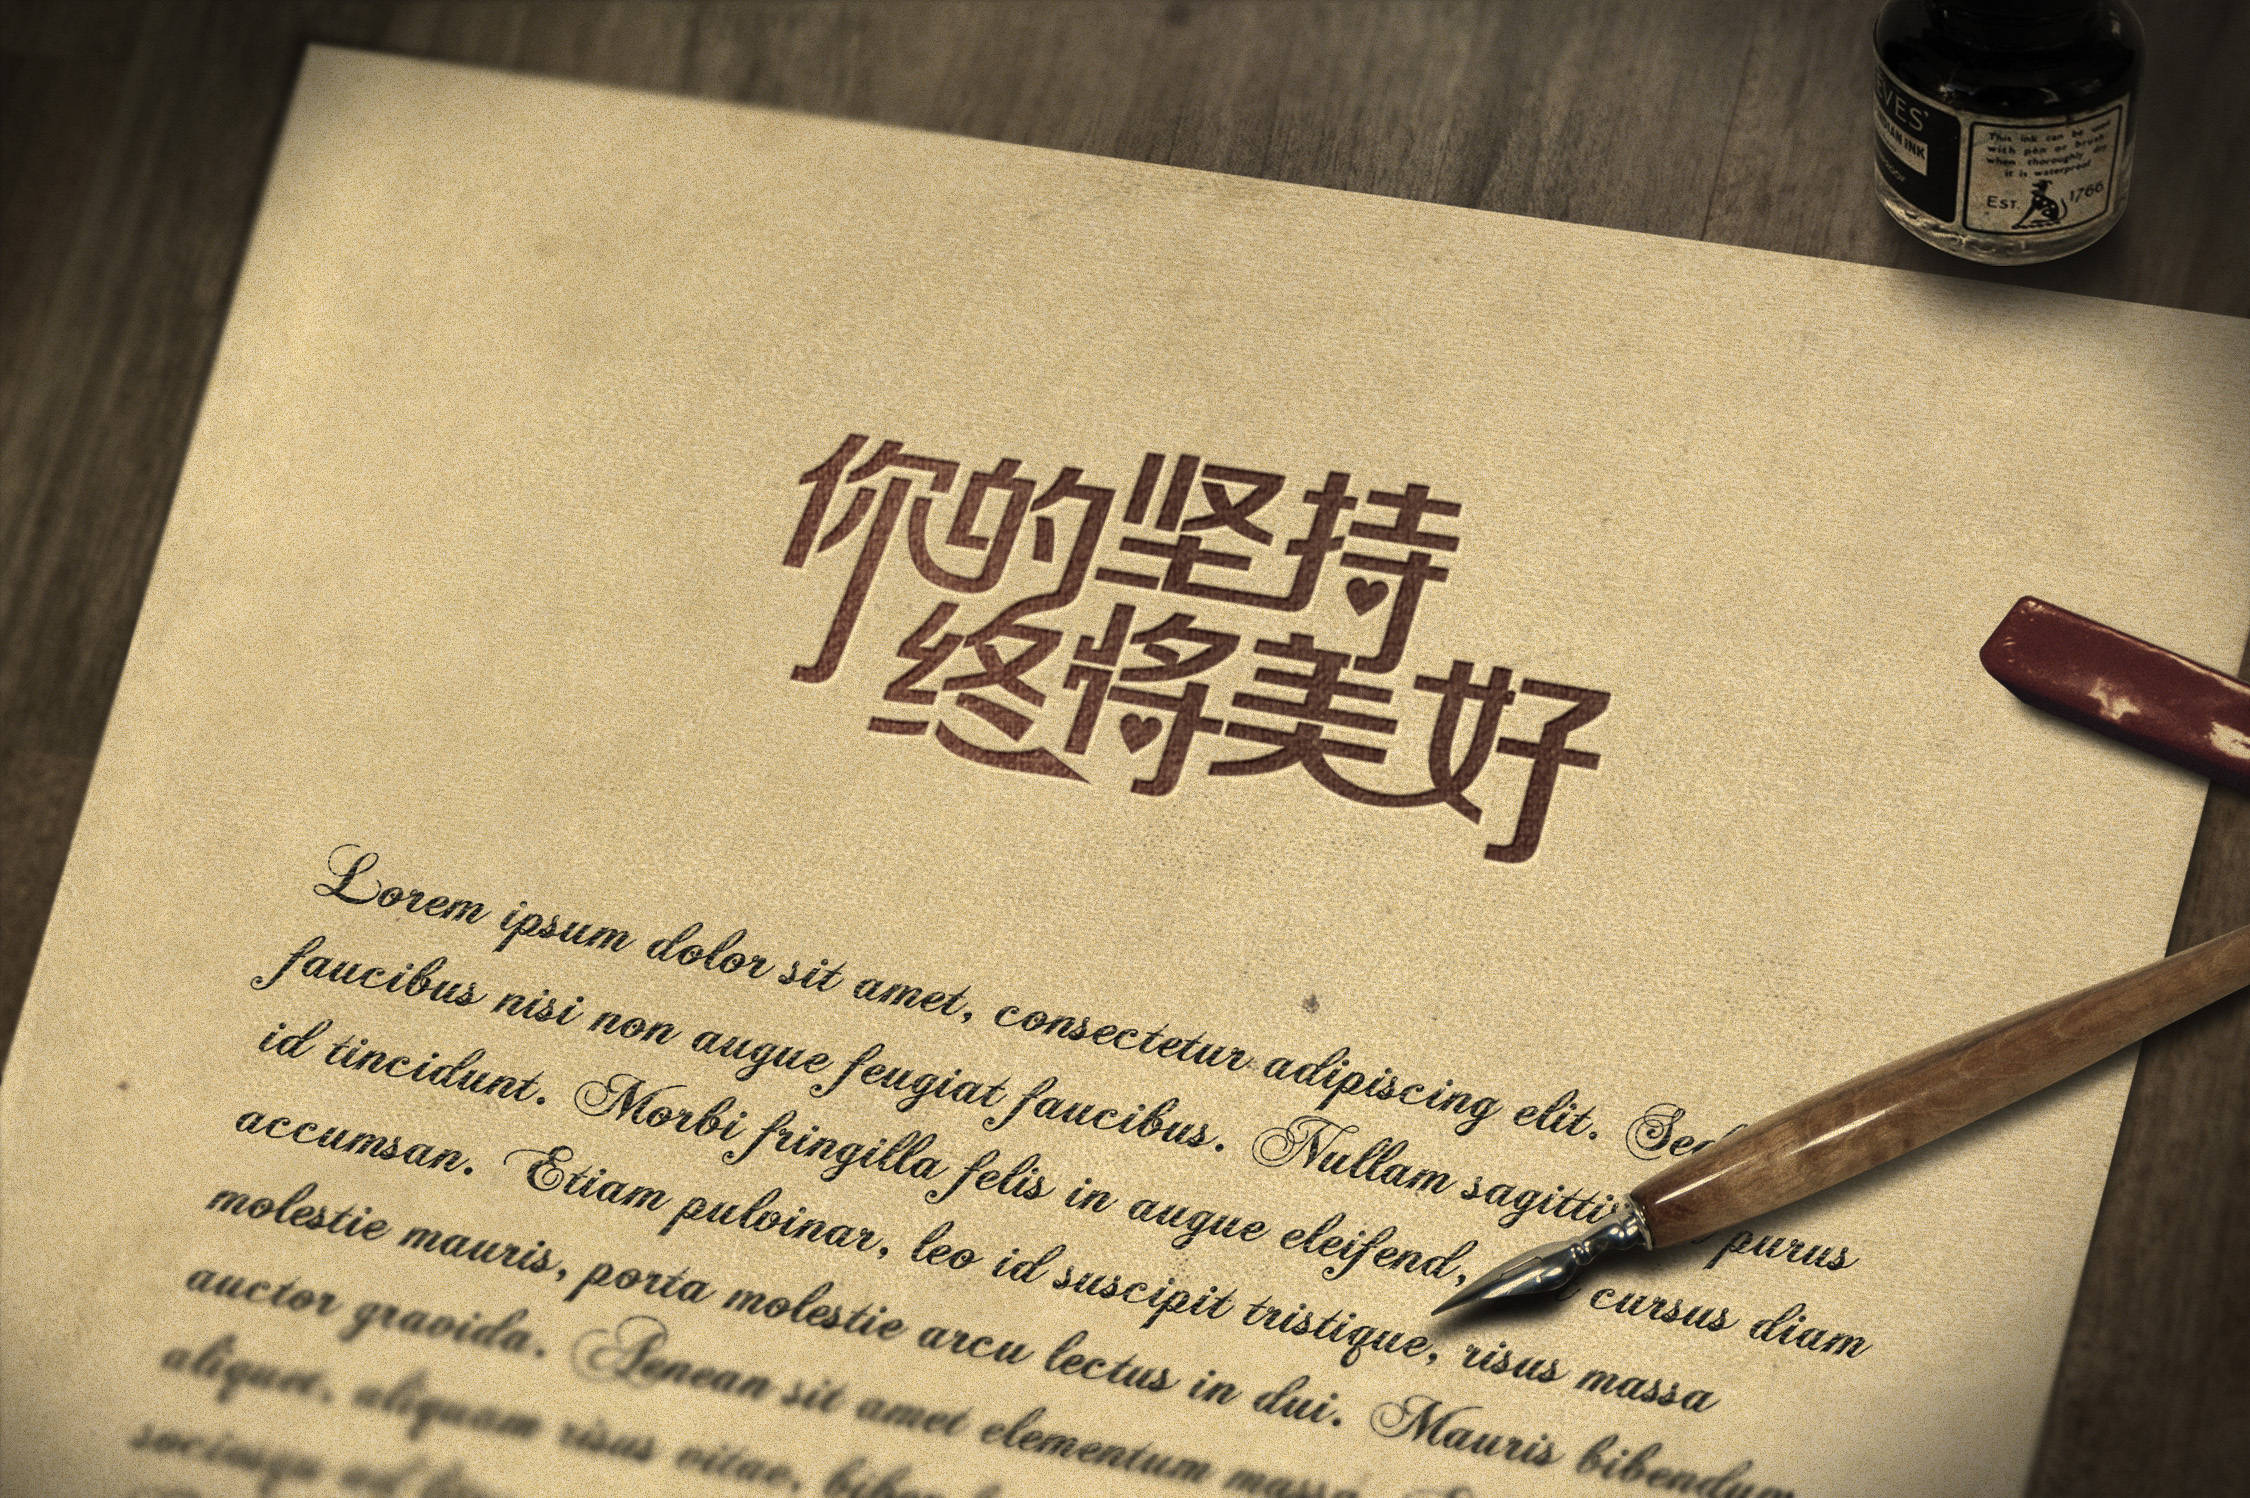 EVES'
INK
This ink can be used
with pen or brush
when thoroughly dry
it is waterproof
EST. 1766
你的坚持
终将美好
Lorem ipsum dolor sit amet, consectetur adipiscing elit. Sed
faucibus nisi non augue feugiat faucibus. Nullam sagittis purus
id tincidunt. Morbi fringilla felis in augue eleifend, cursus diam
accumsan. Etiam pulvinar, leo id suscipit tristique, risus massa
molestie mauris, porta molestie arcu lectus in dui. Mauris bibendum
auctor gravida. Aenean sit amet elementum massa.
aliquet, aliquam risus vitae,
sociosqu ad